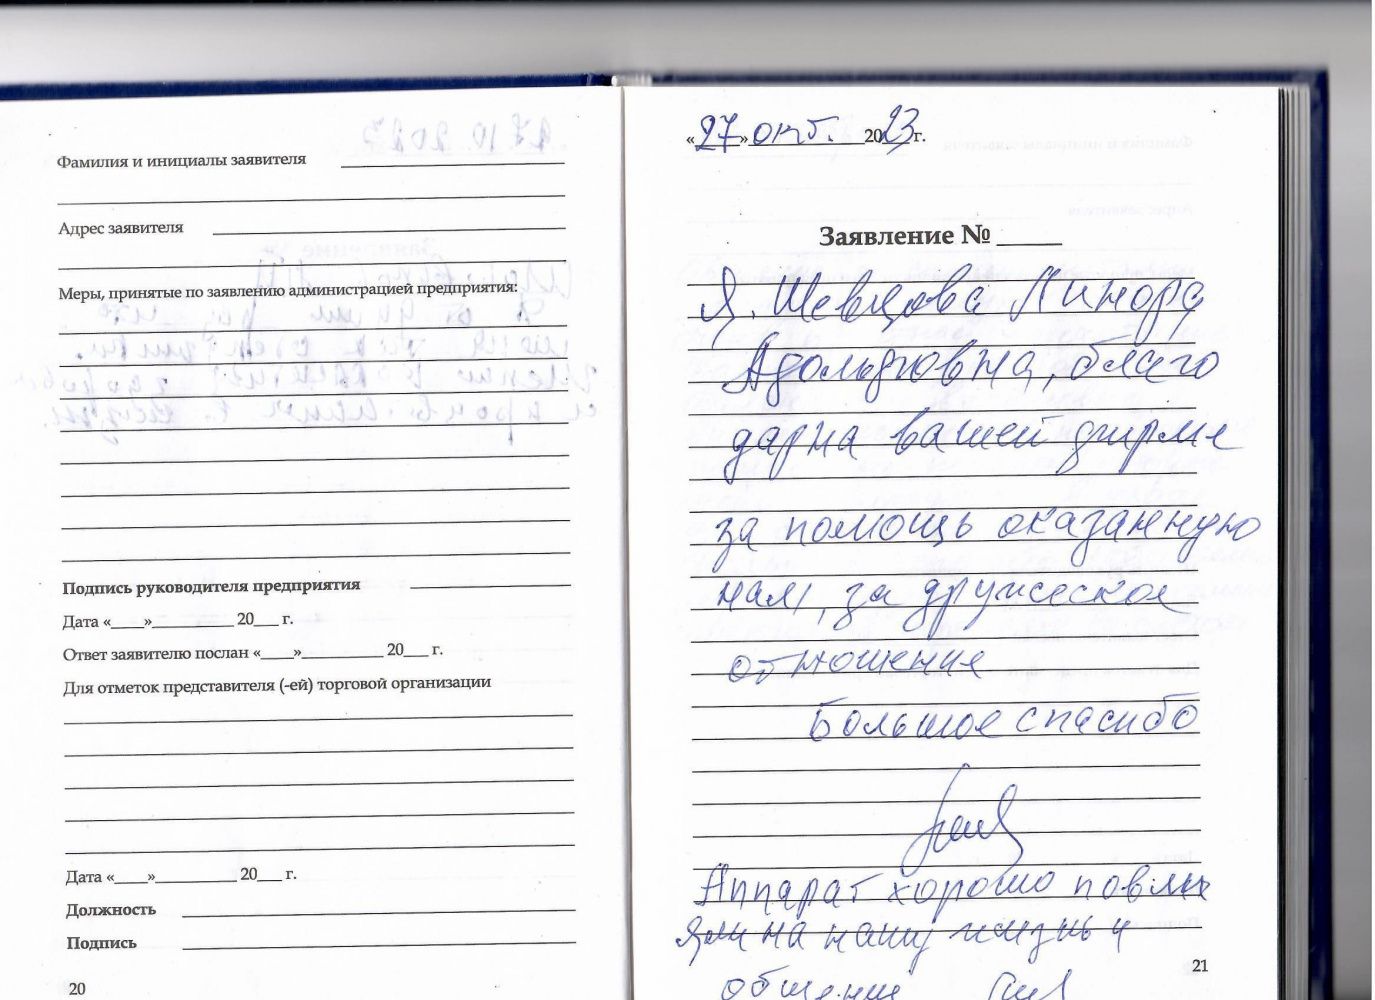 Фамилия и инициалы заявителя
Адрес заявителя
Меры, принятые по заявлению администрацией предприятия:
Подпись руководителя предприятия
Дата «____»__________ 20___ г.
Ответ заявителю послан «____»__________ 20___ г.
Для отметок представителя (-ей) торговой организации
Дата «____»__________ 20___ г.
Должность
Подпись
20
«27» окт. 2023 г.
Заявление № _____
Я. Шевцова Линора
Адольфовна, благо
дарна вашей фирме
за помощь оказанную
нам, за дружеское
отношение
Большое спасибо
Аппарат хорошо повли
яли на нашу жизнь и
общение
21